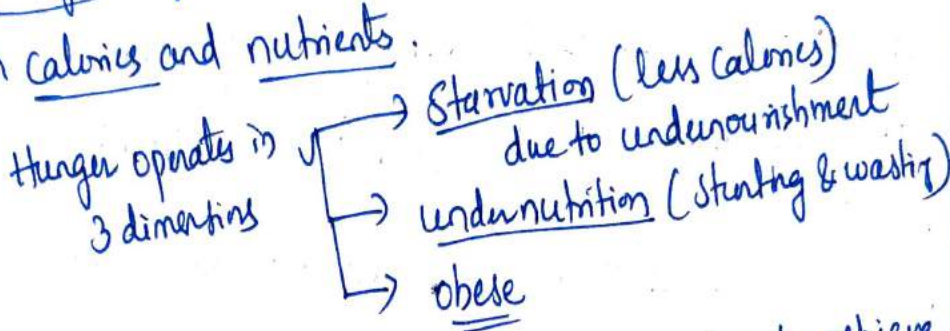 calories and nutrients.
Hunger operates in
3 dimentins
Starvation (less calories)
due to undernourishment
undernutrition (stunting & wasting)
obese